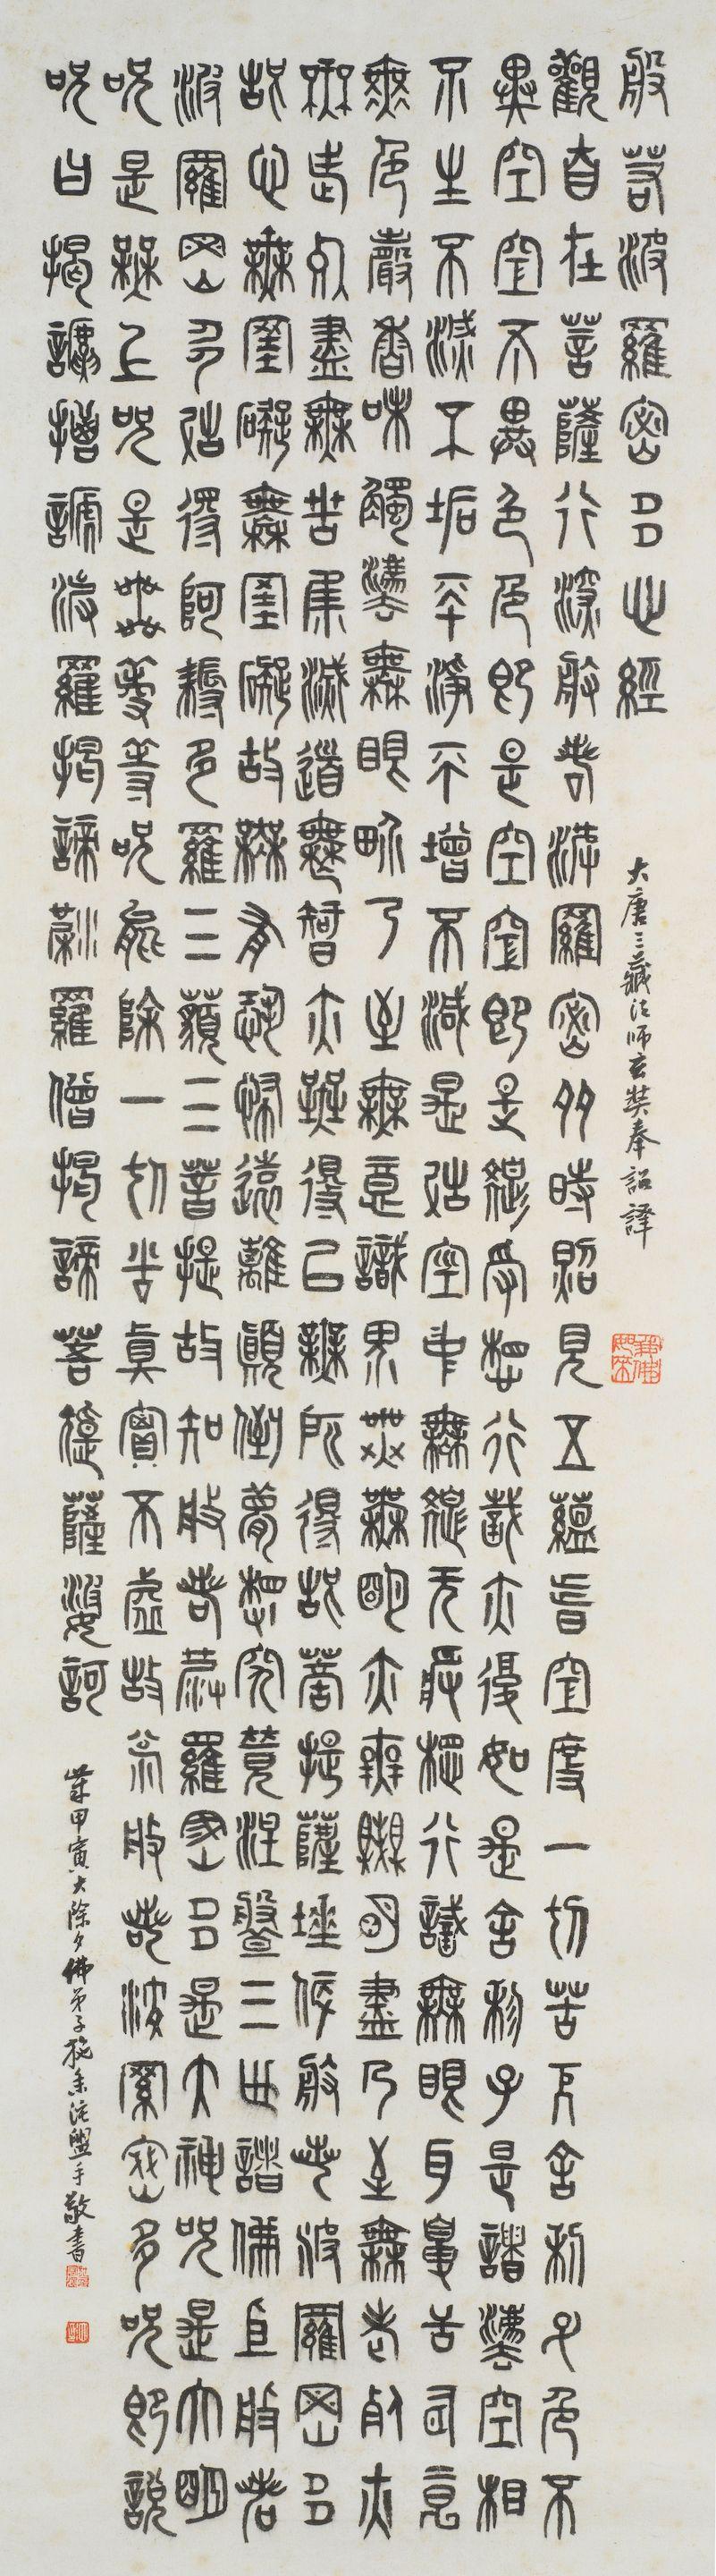 般若波羅密多心經
大唐三藏法師玄奘奉詔譯
觀自在菩薩行深般若波羅密多時照見五蘊皆空度一切苦厄舍利子色不
異空空不異色色即是空空即是色受想行識亦復如是舍利子是諸法空相
不生不滅不垢不淨不增不減是故空中無色无受想行識無眼耳鼻舌身意
無色聲香味觸法無眼界乃至無意識界無無明亦無無明盡乃至無老死亦
無老死盡無苦集滅道無智亦無得以無所得故菩提薩埵依般若波羅密多
故心無罣礙無罣礙故無有恐怖遠離顛倒夢想究竟涅盤三世諸佛依般若
波羅密多故得阿耨多羅三藐三菩提故知般若波羅密多是大神呪是大明
呪是無上呪是無等等呪能除一切苦真實不虛故說般若波羅密多呪即說
呪曰揭諦揭諦波羅揭諦波羅僧揭諦菩提薩婆訶
歲甲寅大除夕佛弟子施盥手敬書